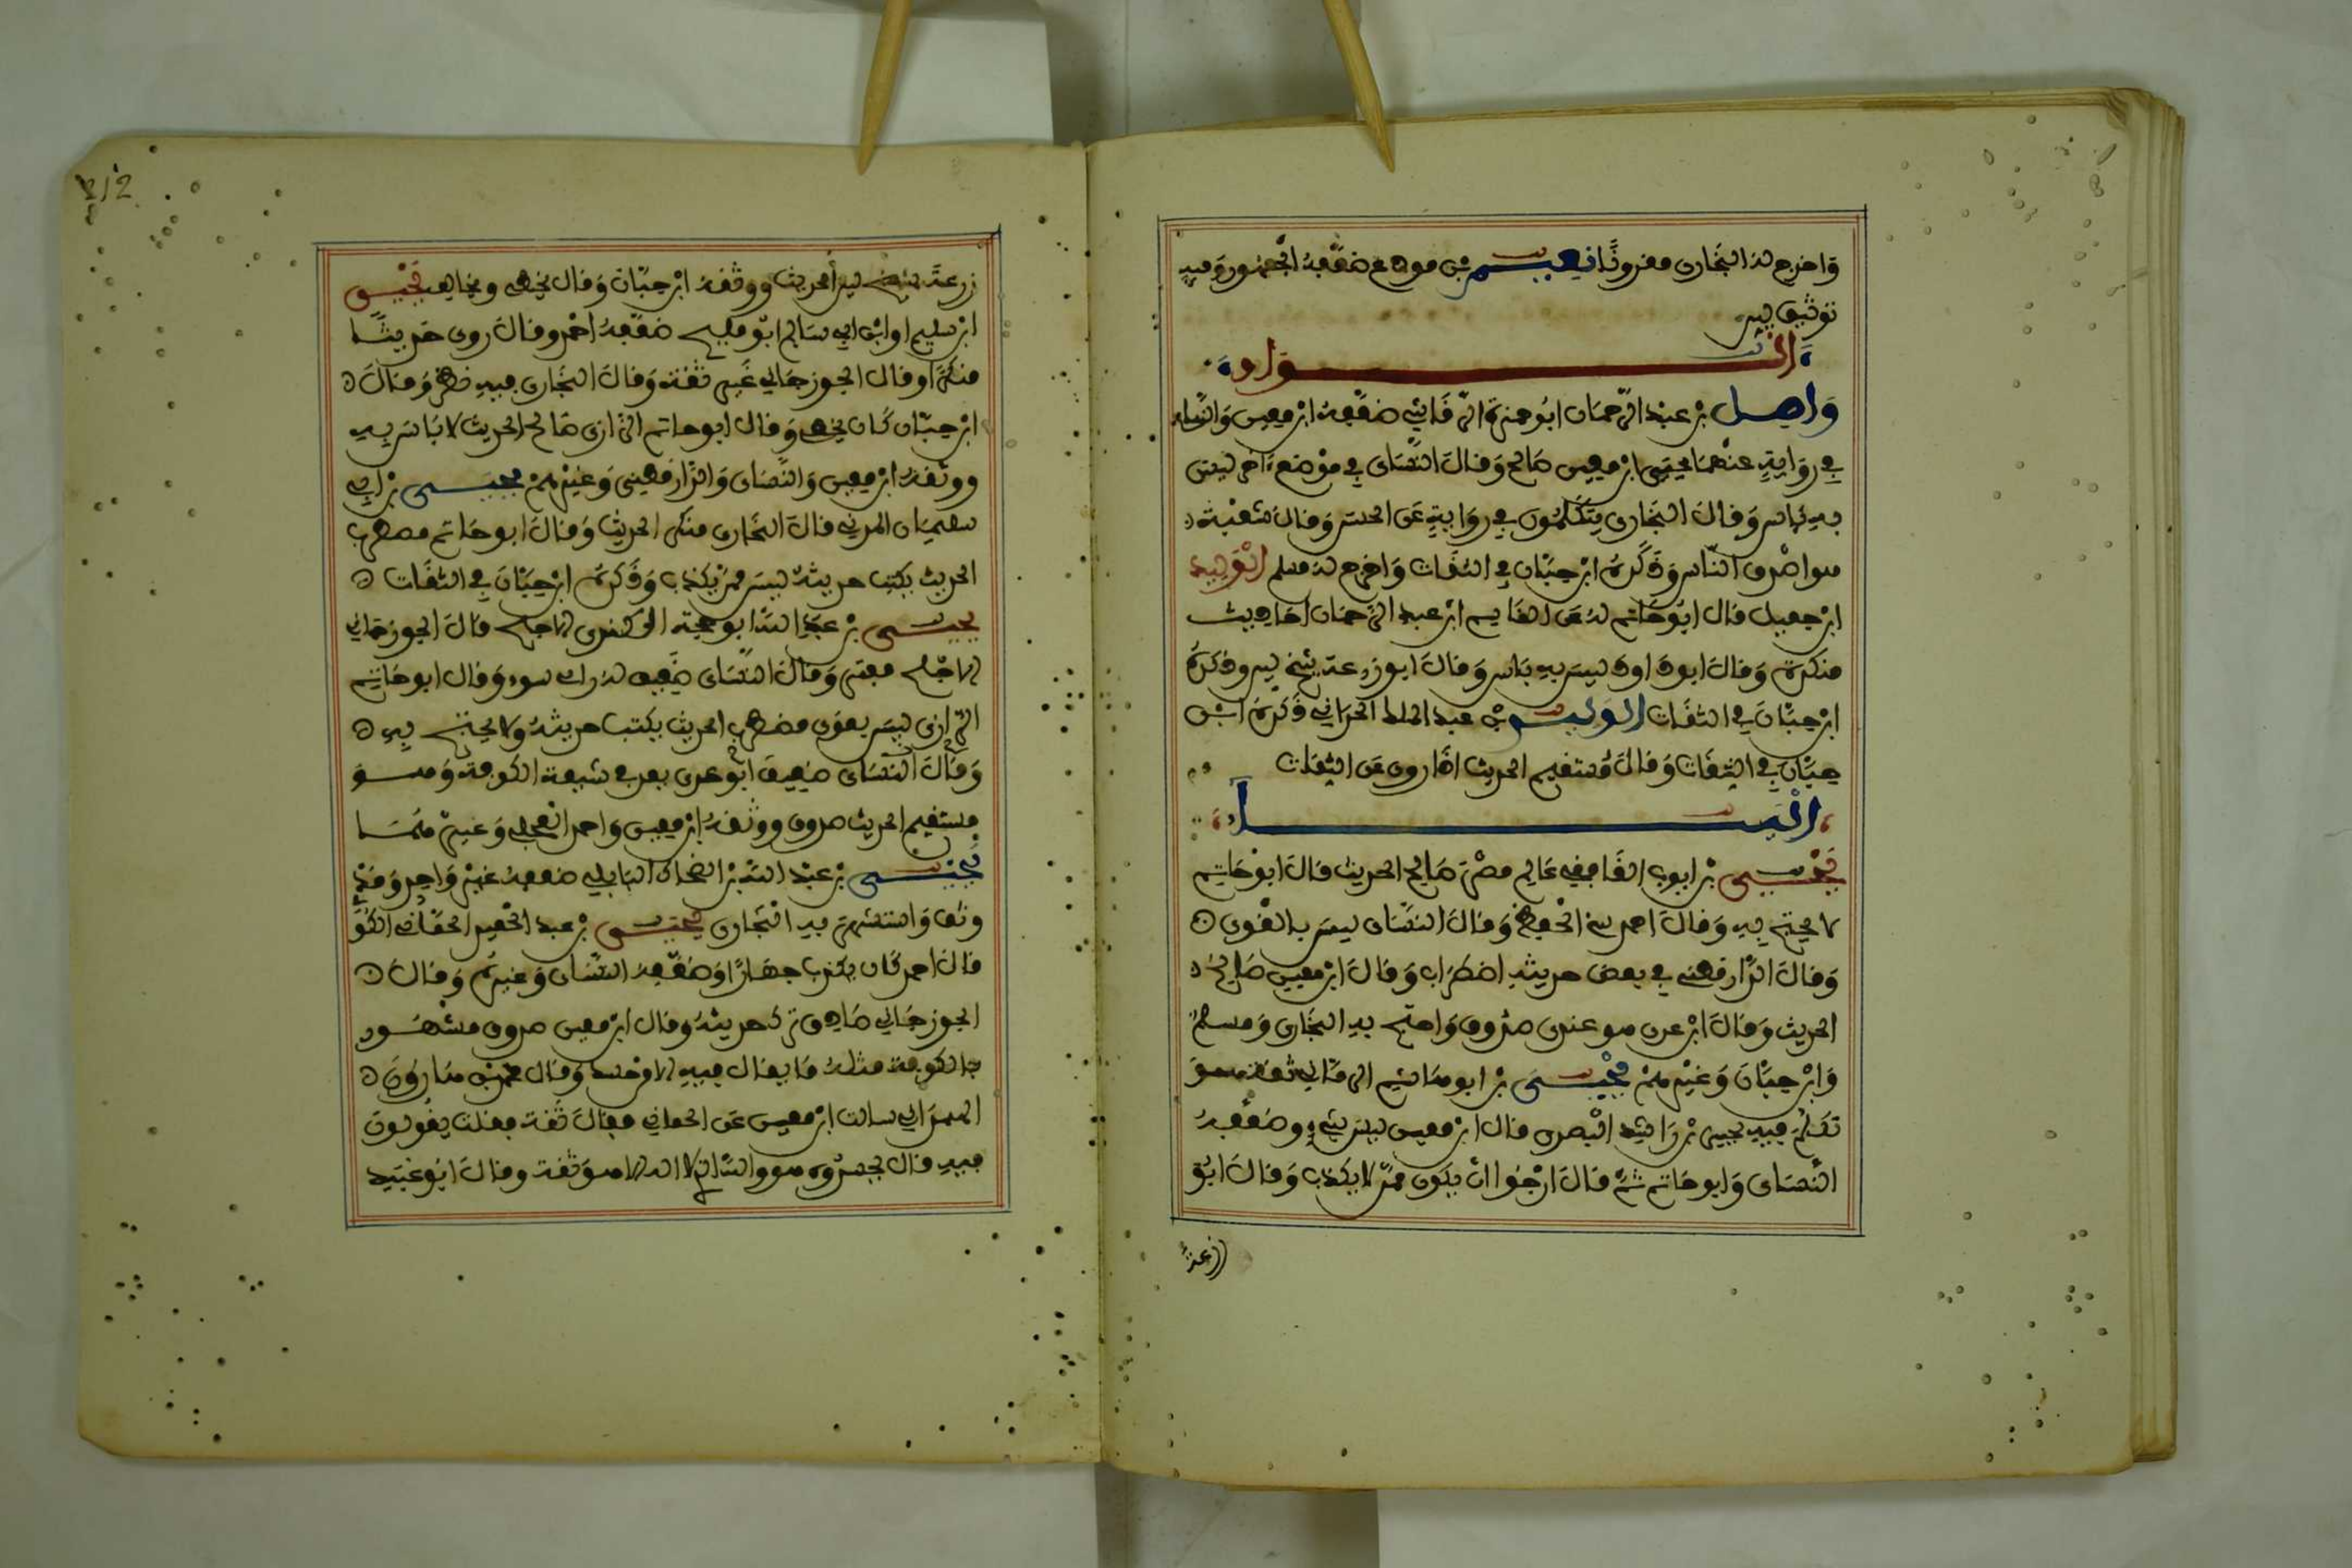 وَاخرج له البُخَارى مقرونًا نعيــم بن مورع ضعّفهُ الجمهور وَفيه
توثيق لين
الــــواو
وَاصـل بن عبد الرّحمان ابُو حمزة الرّقاشي ضعّفهُ ابن معين وَالنَّساءى
في روَايةٍ عنهُما يحيَى ابن معين صَالح وَقالَ النَّسَاى في مَوْضع ءَاخر ليس
به بَاس وَقالَ البُخَارى يتكلّمُون في روَايتهِ عَن الحسن وَقالَ شعْبَة
هو اصْدق النّاس وَذَكَرهُ ابن حِبَّان في الثقات وَاخرج له مسلم الوَليد
ابن جميل قال ابُو حَاتم لهُ عَن القاسم ابن عبد الرَّحمَان احَاديث
منكرة وَقالَ ابو دَاود ليسَ به بَاس وَقالَ ابو زرعة شيخ لين وذكرهُ
ابن حِبَّان في الثقَات الوليــد بن عبد الملك الحرَاني ذَكرهُ ابْن
حِبَّان في الثقَات وَقالَ مُستقيم الحديث اذَا روى عَن الثقات
اليــــاء
يَحْيــى بن ايوب الغَافقي عَالم مصْر صَالح الحديث قالَ ابُو حَاتم
لا يحتج به وَقالَ احمد سيّ الحفظ وَقالَ النسَاى ليسَ بالقوى
وَقالَ الدَّارقطني في بعض حديثه اضطرَاب وَقالَ ابن معين صَالحُ
الحديث وَقالَ ابن عدى هو عندى صَدُوق وَاحتج به البخَارى وَمسلم
وَابن حِبَّان وَغيرهمْ يَحْيــى بن ابو هَاشم الرمَّاني ثقة هو
تكلم فيه يحيى بن رَاشد البَصرى قال ابن معين ليسَ بشيءٍ وضعّفهُ
النّسَاى وَابو حَاتم ثمَّ قالَ ارْجُوا انْ يكون ممّن لا يكذب وَقالَ ابُو
زرعةُ
زرعَة شيخ لين الحديث ووثّقهُ ابن حِبَّان وَقال يخطى ويخالف يَحْيــى
ابن سليم او ابْن ابي سَالم ابُو بلج ضعّفهُ احمد وقالَ روى حَديثًا
منكرًا وقال الجوزجَاني غَير ثقة وَقالَ البُخَارى فيهِ نظر وَقالَ
ابن حِبَّان كان يخطى وَقال ابو حاتم الرَّازى صَالح الحديث لا بَاسَ بهِ
ووثقهُ ابن معين وَالنّسَاى وَالدَّارقطنى وَغيرهمْ يحيــى بن ابى
سليمَان المدني قالَ البُخَارى منكر الحديث وَقالَ ابو حَاتم مضطرب
الحديث يكتب حديثهُ ليسَ ممّن يكذب وَذَكرهُ ابن حِبَّان في الثقَات
يحيــى بن عَبد الله ابو حجية الكندى الاجلح قالَ الجوزجَاني
الاجْلح مفتر وَقالَ النّسَاى ضعيف لهُ راى سوء وَقال ابو حَاتم
الرَّازى ليسَ بقوى مضطرب الحديث يكتب حديثهُ ولا يحتج بهِ
وَقَالَ النّسَاى ضعيفَ ابُو عدى يعد في شيعة الكوفة وَهــو
مستقيم الحديث صدوق ووثقهُ ابن معين وَاحمد العجلي وَغيرهُمَــا
يَحْيــى بن عَبْد الله بن الضحاك البَابلي ضعفهُ غير وَاحد وَقدْ
وثق وَاستشهدَ به البُخَارى يَحْيــى بن عبد الحميد الحمَّاني الكُو
قالَ احمد كان يكذب جهَارًا وَضعّفهُ النسَاى وَغيرهُ وَقالَ
الجوزجَاني سَاقط ترك حديثهُ وقال ابن معين صدوق مشْهُــور
بالكوفة مثلهُ مَا يقال فيهِ الا من حسد وَقال محمد بن هَارُون
الهمدَاني سالت ابن معين عَن الحماني فقالَ ثقة فقلت يقولونَ
فيهِ قال يحسدُوه هو والله الذي لا اله الا هو ثقة وقالَ ابُو عُبَيد